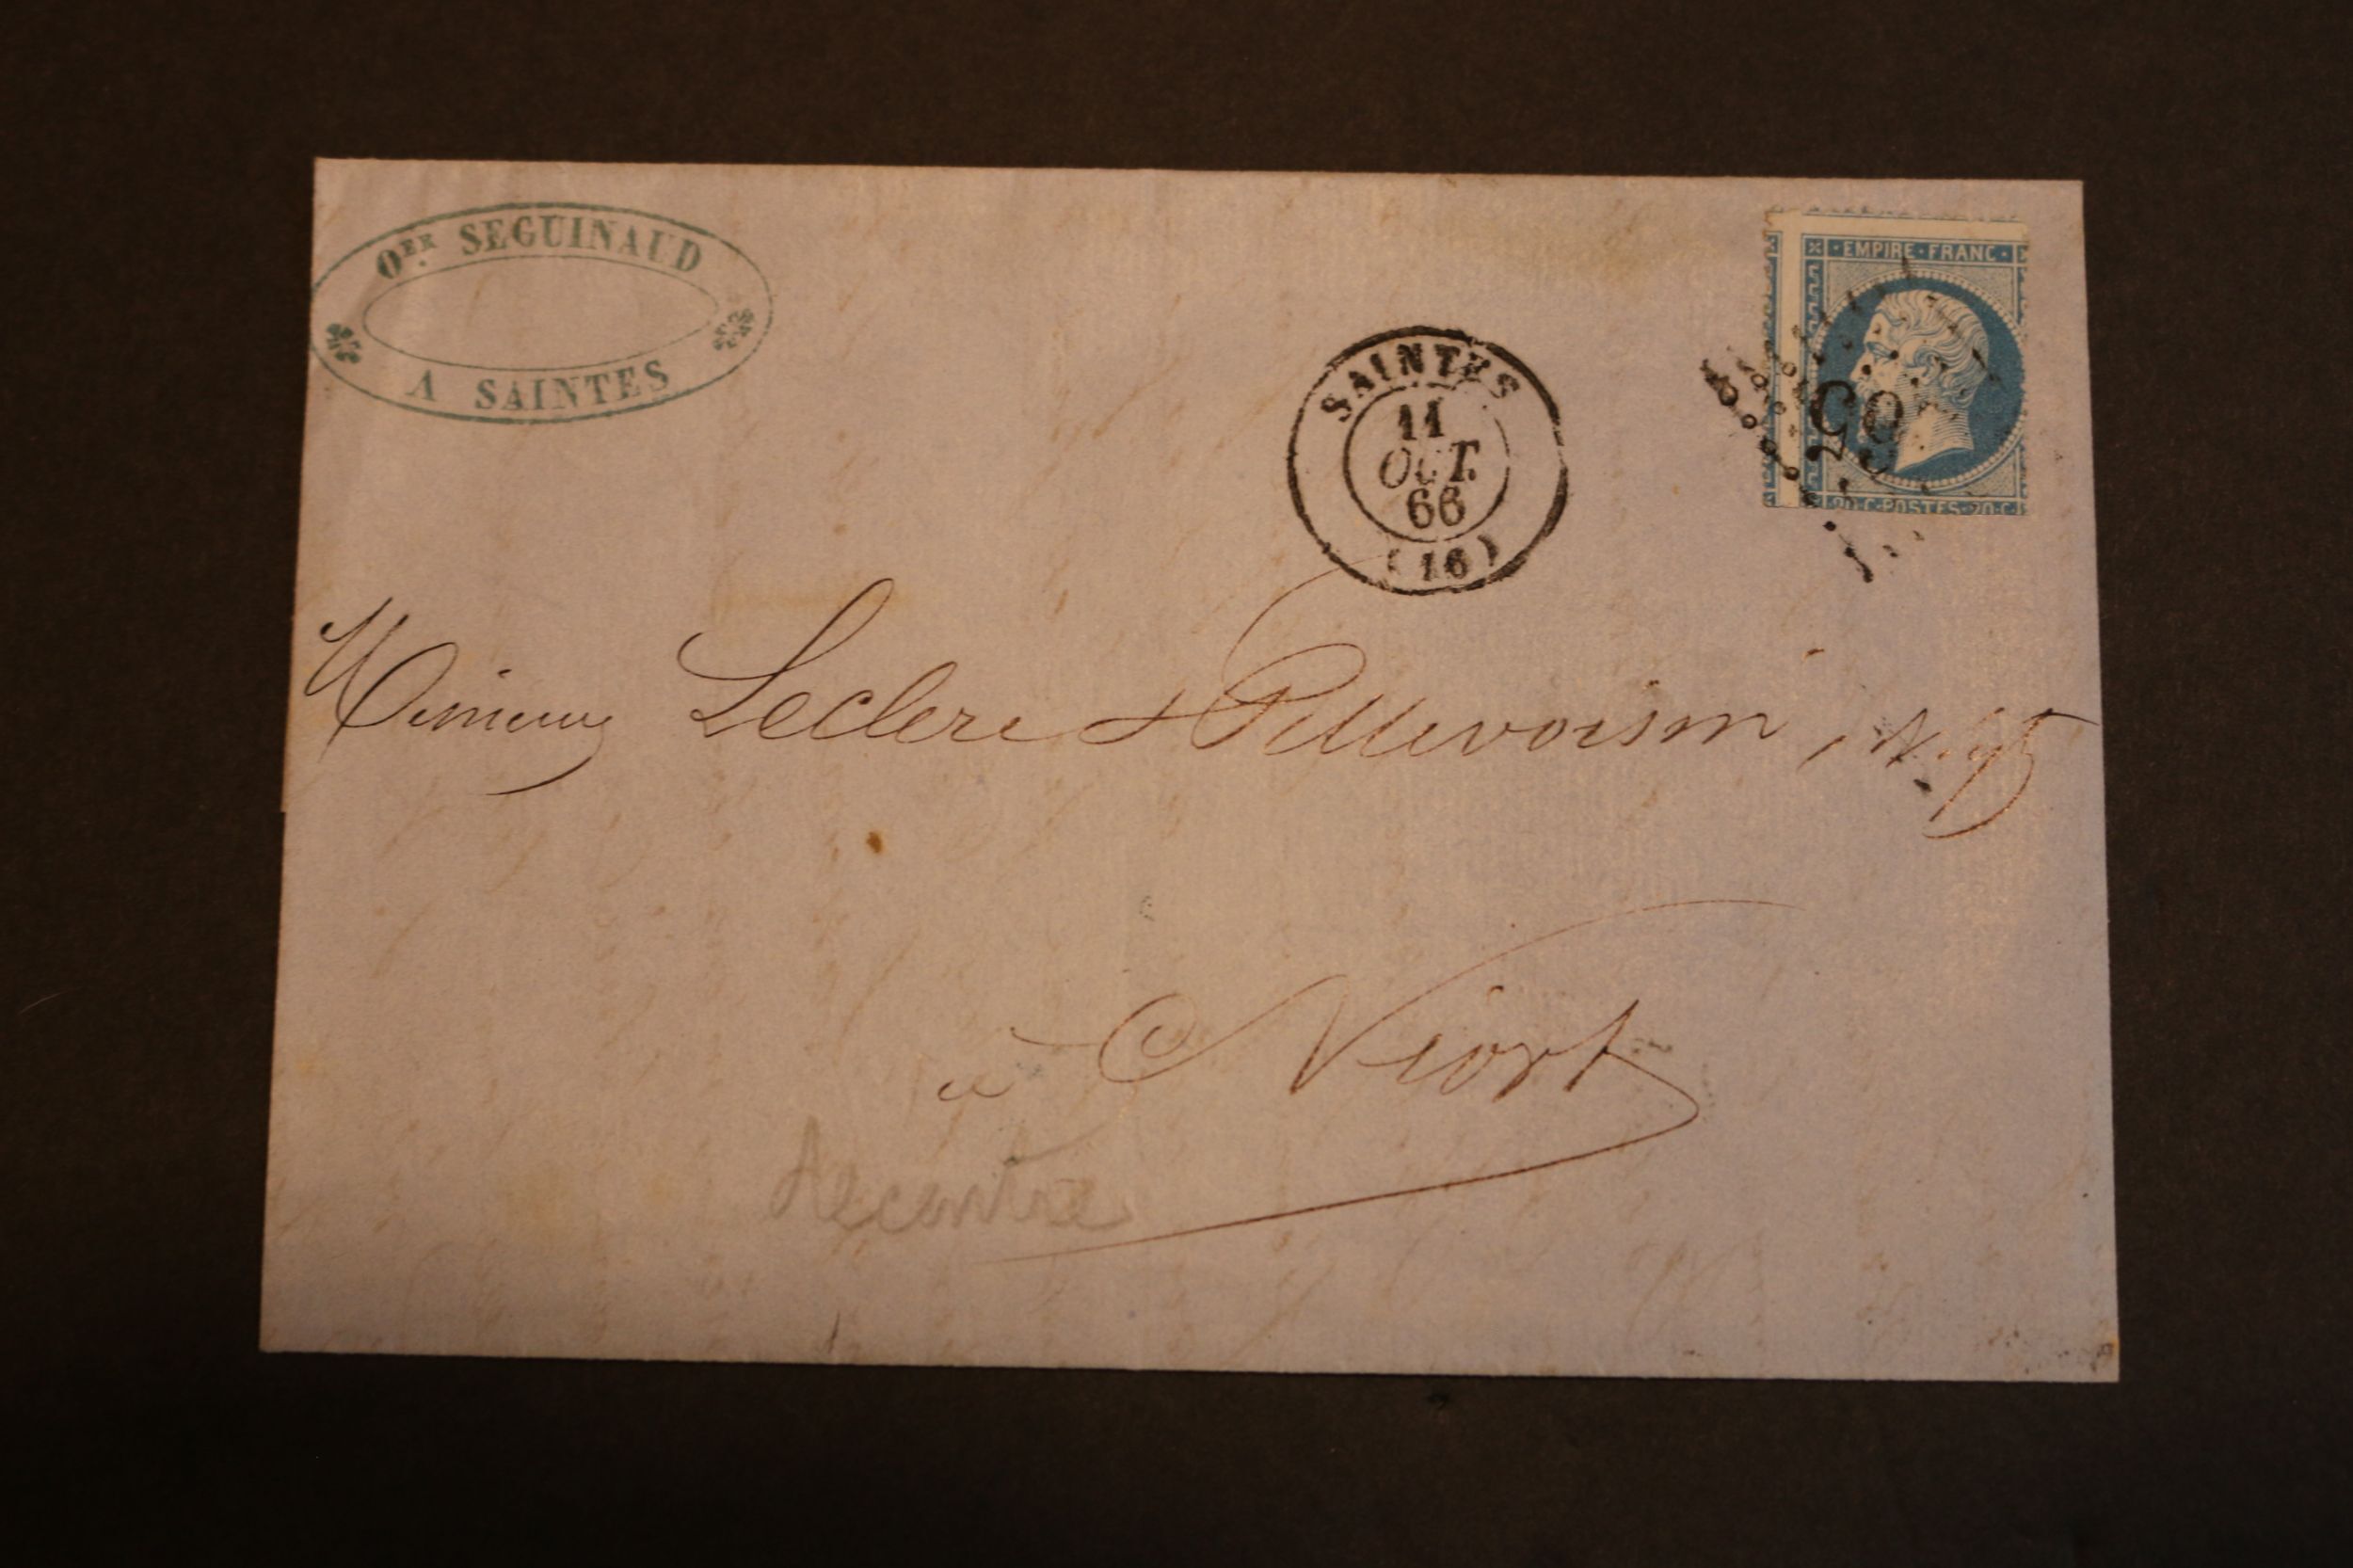 OER. SEGUINAUD
A SAINTES
SAINTES
11
OCT.
66
(16)
EMPIRE · FRANC ·
20 · C · POSTES · 20 · C
Messieurs Leclerc & Pillevoisin,
à Niort